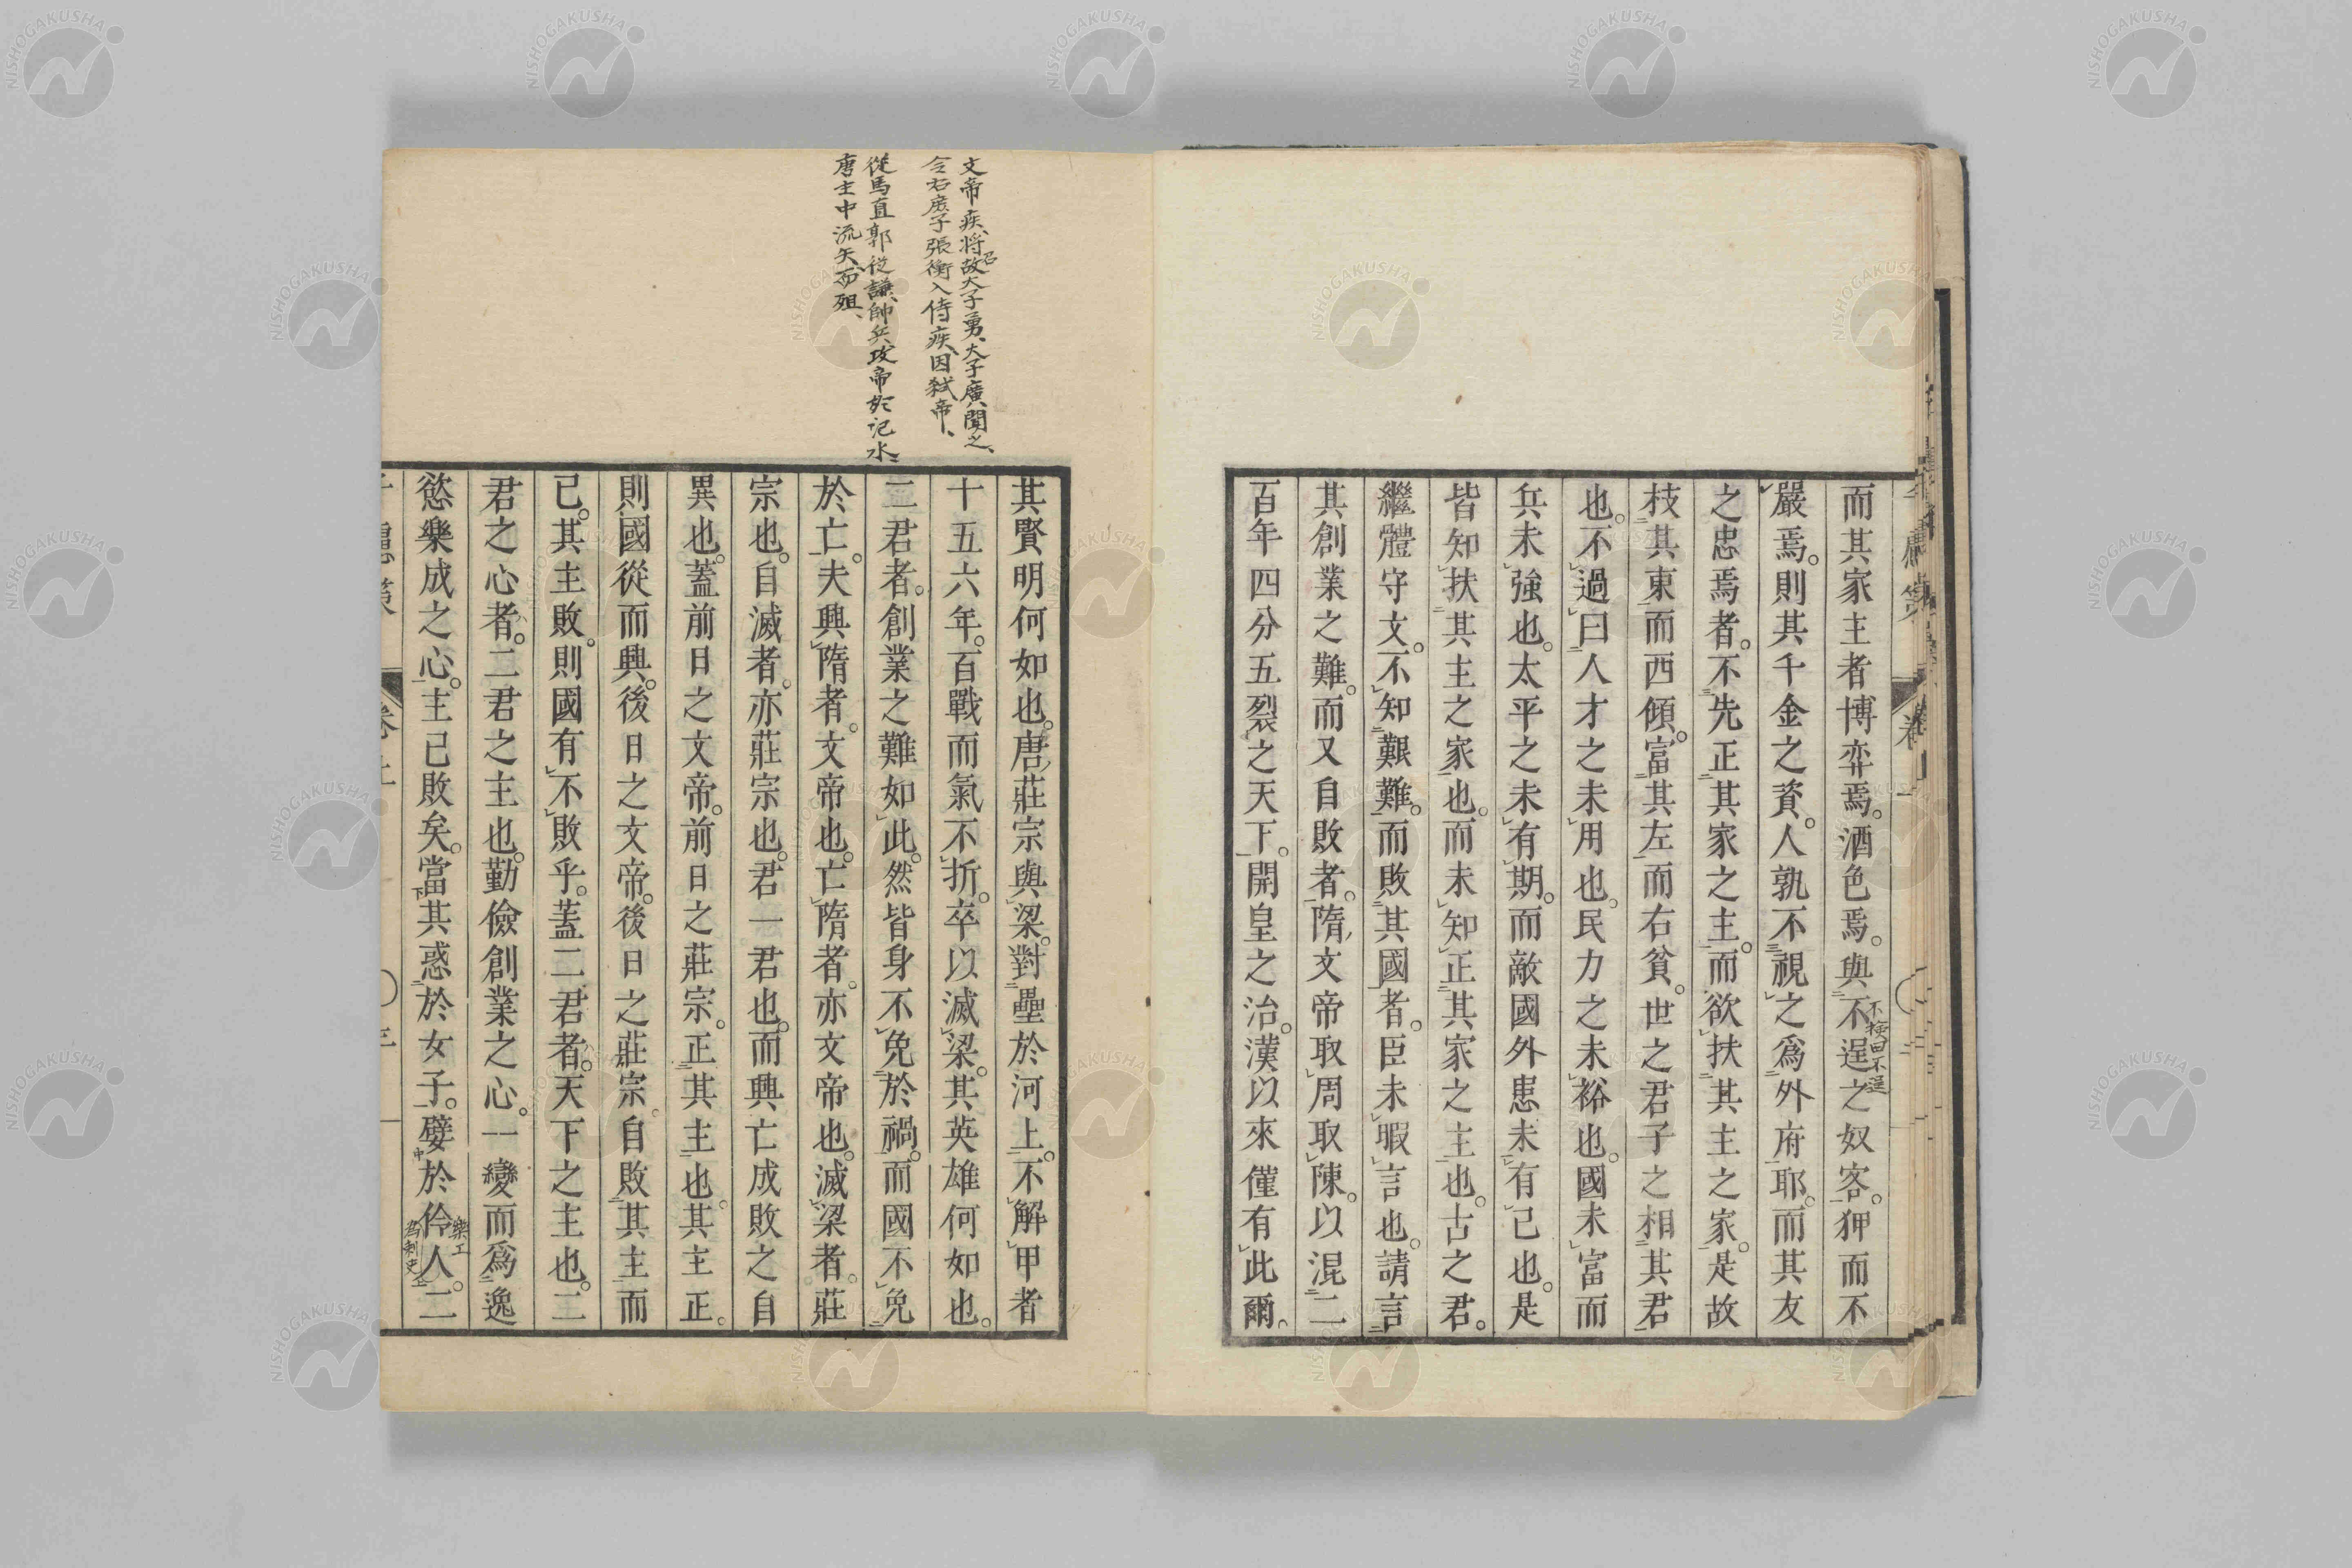 而其家主者博弈焉。酒色焉。與不逞之奴客。狎而不
不檢曰不逞
嚴焉。則其千金之資。人孰不視之爲外府耶。而其友
之忠焉者。不先正其家之主。而欲扶其主之家。是故
枝其東而西傾。富其左而右貧。世之君子之相其君
也。不過曰人才之未用也。民力之未裕也。國未富而
兵未強也。太平之未有期。而敵國外患未有已也。是
皆知扶其主之家也。而未知正其家之主也。古之君。
繼體守文。不知艱難。而敗其國者。臣未暇言也。請言
其創業之難。而又自敗者。隋文帝取周取陳。以混二
百年四分五裂之天下。開皇之治。漢以來僅有此爾。
文帝疾、將召故太子勇、太子廣聞之、
令右庶子張衡入侍疾、因弑帝、
從馬直郭從謙帥兵攻帝於汜水
唐主中流矢、而殂、
其賢明何如也。唐莊宗與梁。對壘於河上。不解甲者
十五六年。百戰而氣不折。卒以滅梁。其英雄何如也。
二君者。創業之難如此。然皆身不免於禍。而國不免
於亡。夫興隋者。文帝也。亡隋者。亦文帝也。滅梁者。莊
宗也。自滅者。亦莊宗也。君一君也。而興亡成敗之自
異也。蓋前日之文帝。前日之莊宗。正其主也。其主正。
則國從而興。後日之文帝。後日之莊宗。自敗其主而
已。其主敗。則國有不敗乎。蓋二君者。天下之主也。二
君之心者。二君之主也。勤儉創業之心。一變而爲逸
慾樂成之心。主已敗矣。當其惑於女子。嬖於伶人。二
樂工
爲刺史